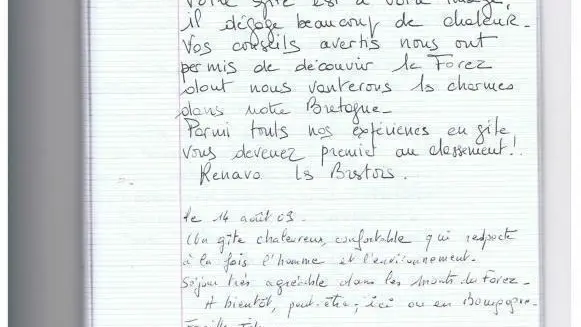 Votre gîte est à votre image,
il dégage beaucoup de chaleur.
Vos conseils avertis nous ont
permis de découvrir le Forez
dont nous vanterons ls charmes
dans notre Bretagne.
Parmi touts nos expériences en gîte,
vous devenez premier au classement!.
Renavo ls
le 14 août 03.
Un gîte chaleureux, confortable qui respecte
à la fois l'homme et l'environnement.
Séjour très agréable dans les Monts du Forez.
A bientôt, peut-être, ici ou en Bourgogne.
Famille